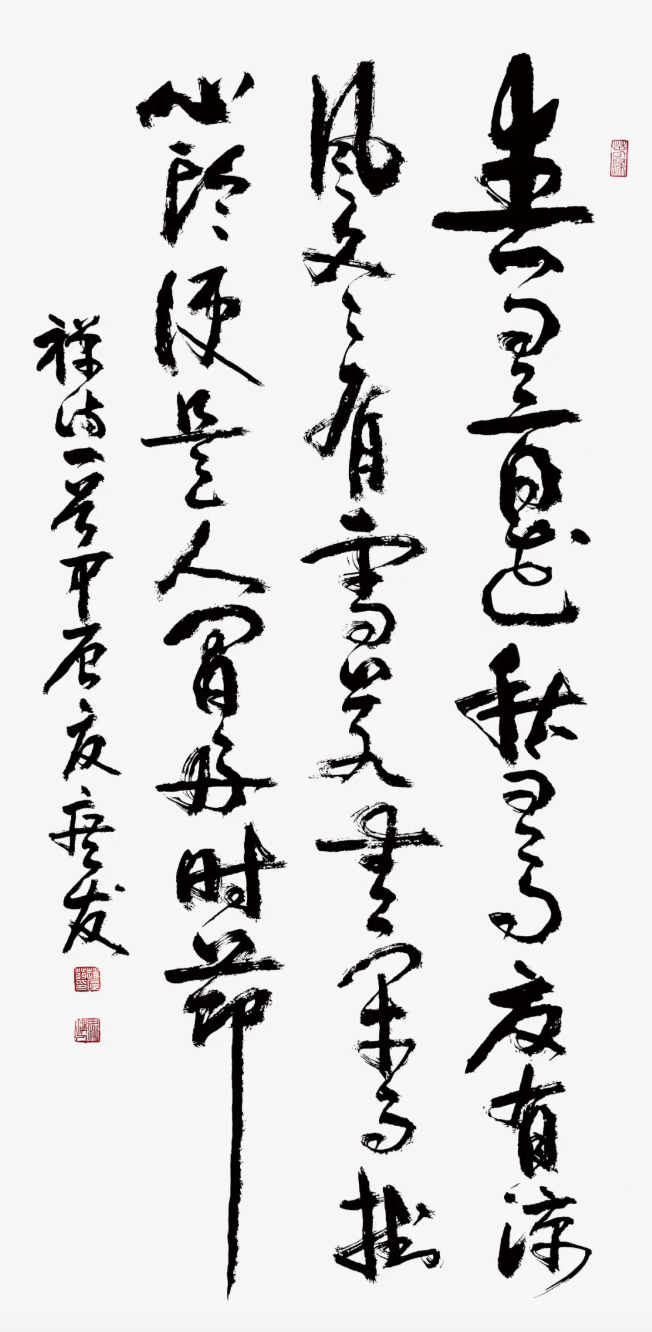 春有百花秋有月夏有凉
风冬有雪若无闲事挂
心头便是人间好时节
禅诗一首甲辰夏